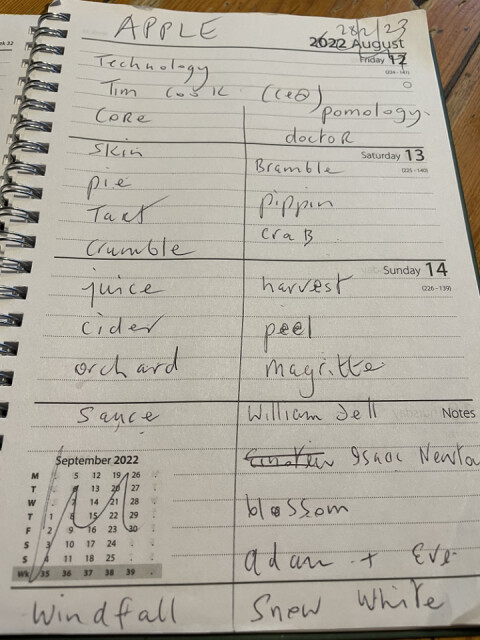 APPLE
28/2/23
2022 August
Friday 12
(224 - 141)
Technology
Tim Cook (CEO)
Core
pomology
doctor
Skin
Saturday 13
(225 - 140)
Bramble
pie
pippin
Tart
craB
Crumble
Sunday 14
(226 - 139)
juice
harvest
cider
peel
orchard
magritte
Sauce
William Tell
Notes
September 2022
M 5 12 19 26
T 6 13 20 27
W 7 14 21 28
T 1 8 15 22 29
F 2 9 16 23 30
S 3 10 17 24
S 4 11 18 25
Wk 35 36 37 38 39
Einstein Isaac Newton
blossom
adam + Eve
Windfall
Snow White